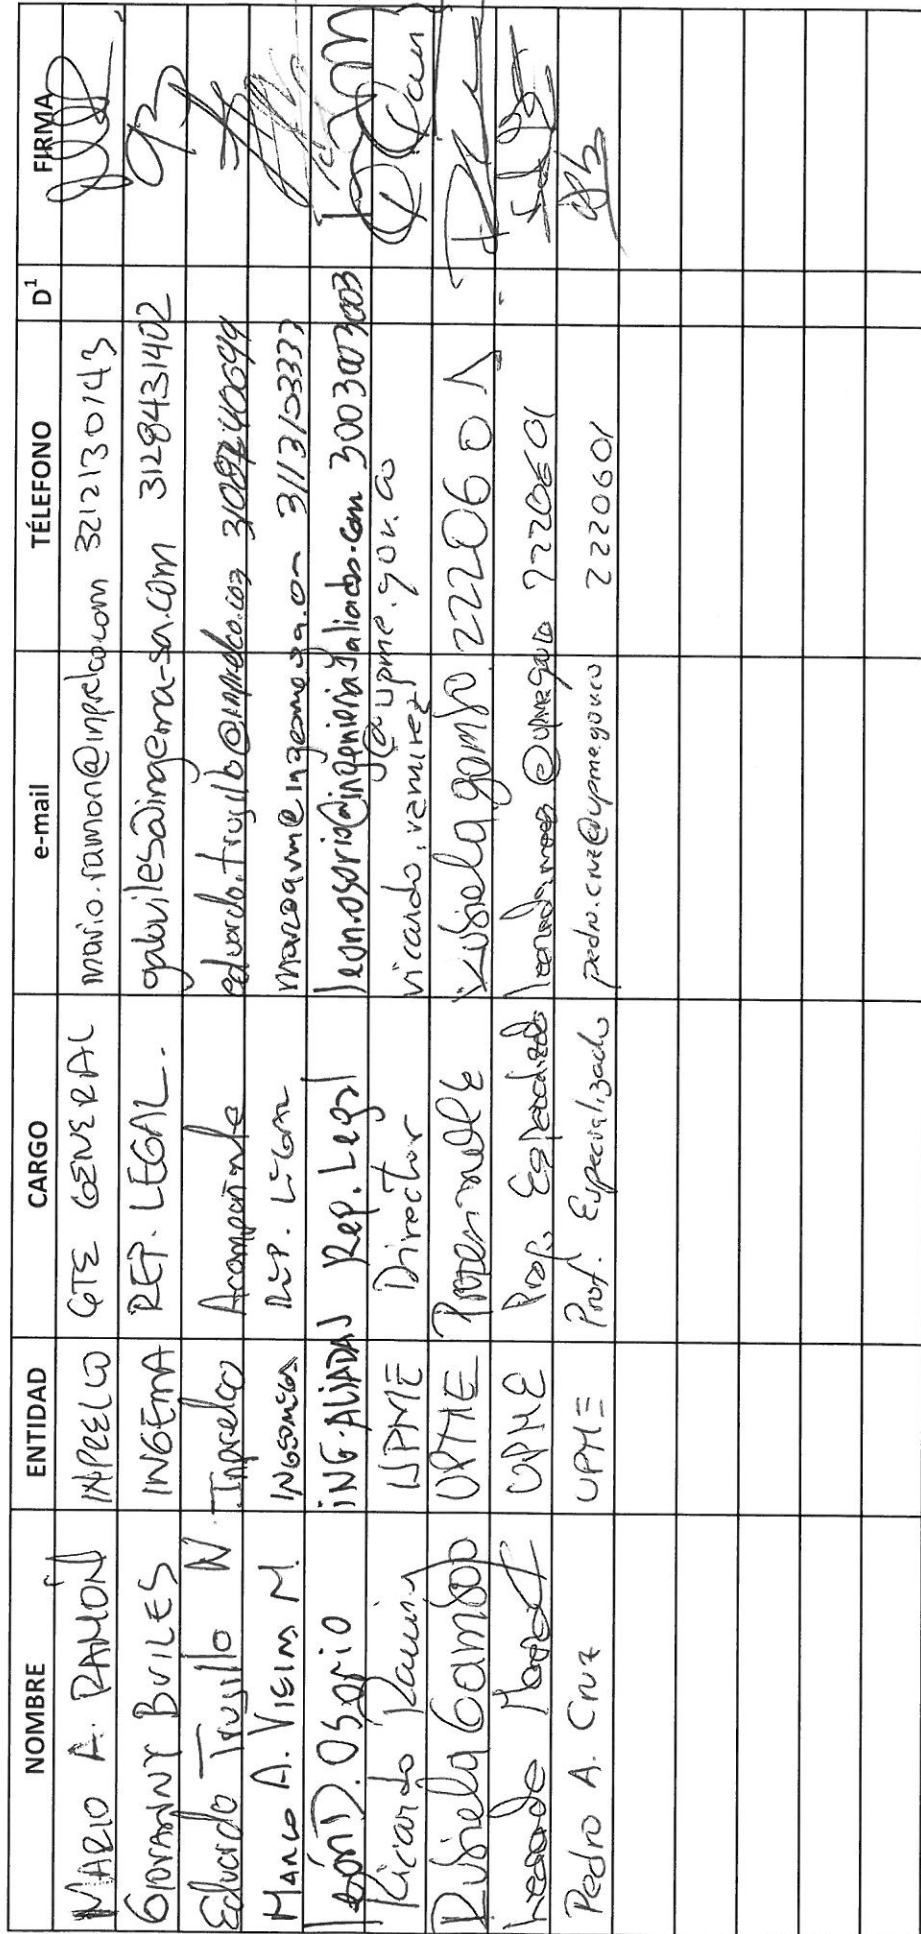 NOMBRE ENTIDAD CARGO e-mail TÉLEFONO D¹ FIRMA
MARIO A. RAMÓN INPRELCO GTE GENERAL mario.ramon@inprelco.com 3212130143
GIOVANNY BUILES INGEMA REP. LEGAL. gabuiles@ingema-sa.com 3128431402
Eduardo Trujillo N. Inprelco Acompañante eduardo.trujillo@inprelco.com
MARCO A. VIEIRA M. REP. LEGAL 3113103333
León D. Osorio ING. ALIADAS Rep. Legal leon.osorio@ingenieriasaliadas.com 3003003003
Ricardo Ramirez UPME Director ricardo.ramirez@upme.gov.co
Rubiela Gamboa UPME 2220601
UPME Prof. Especializado 2220601
Pedro A. Cruz UPME Prof. Especializado pedro.cruz@upme.gov.co 2220601